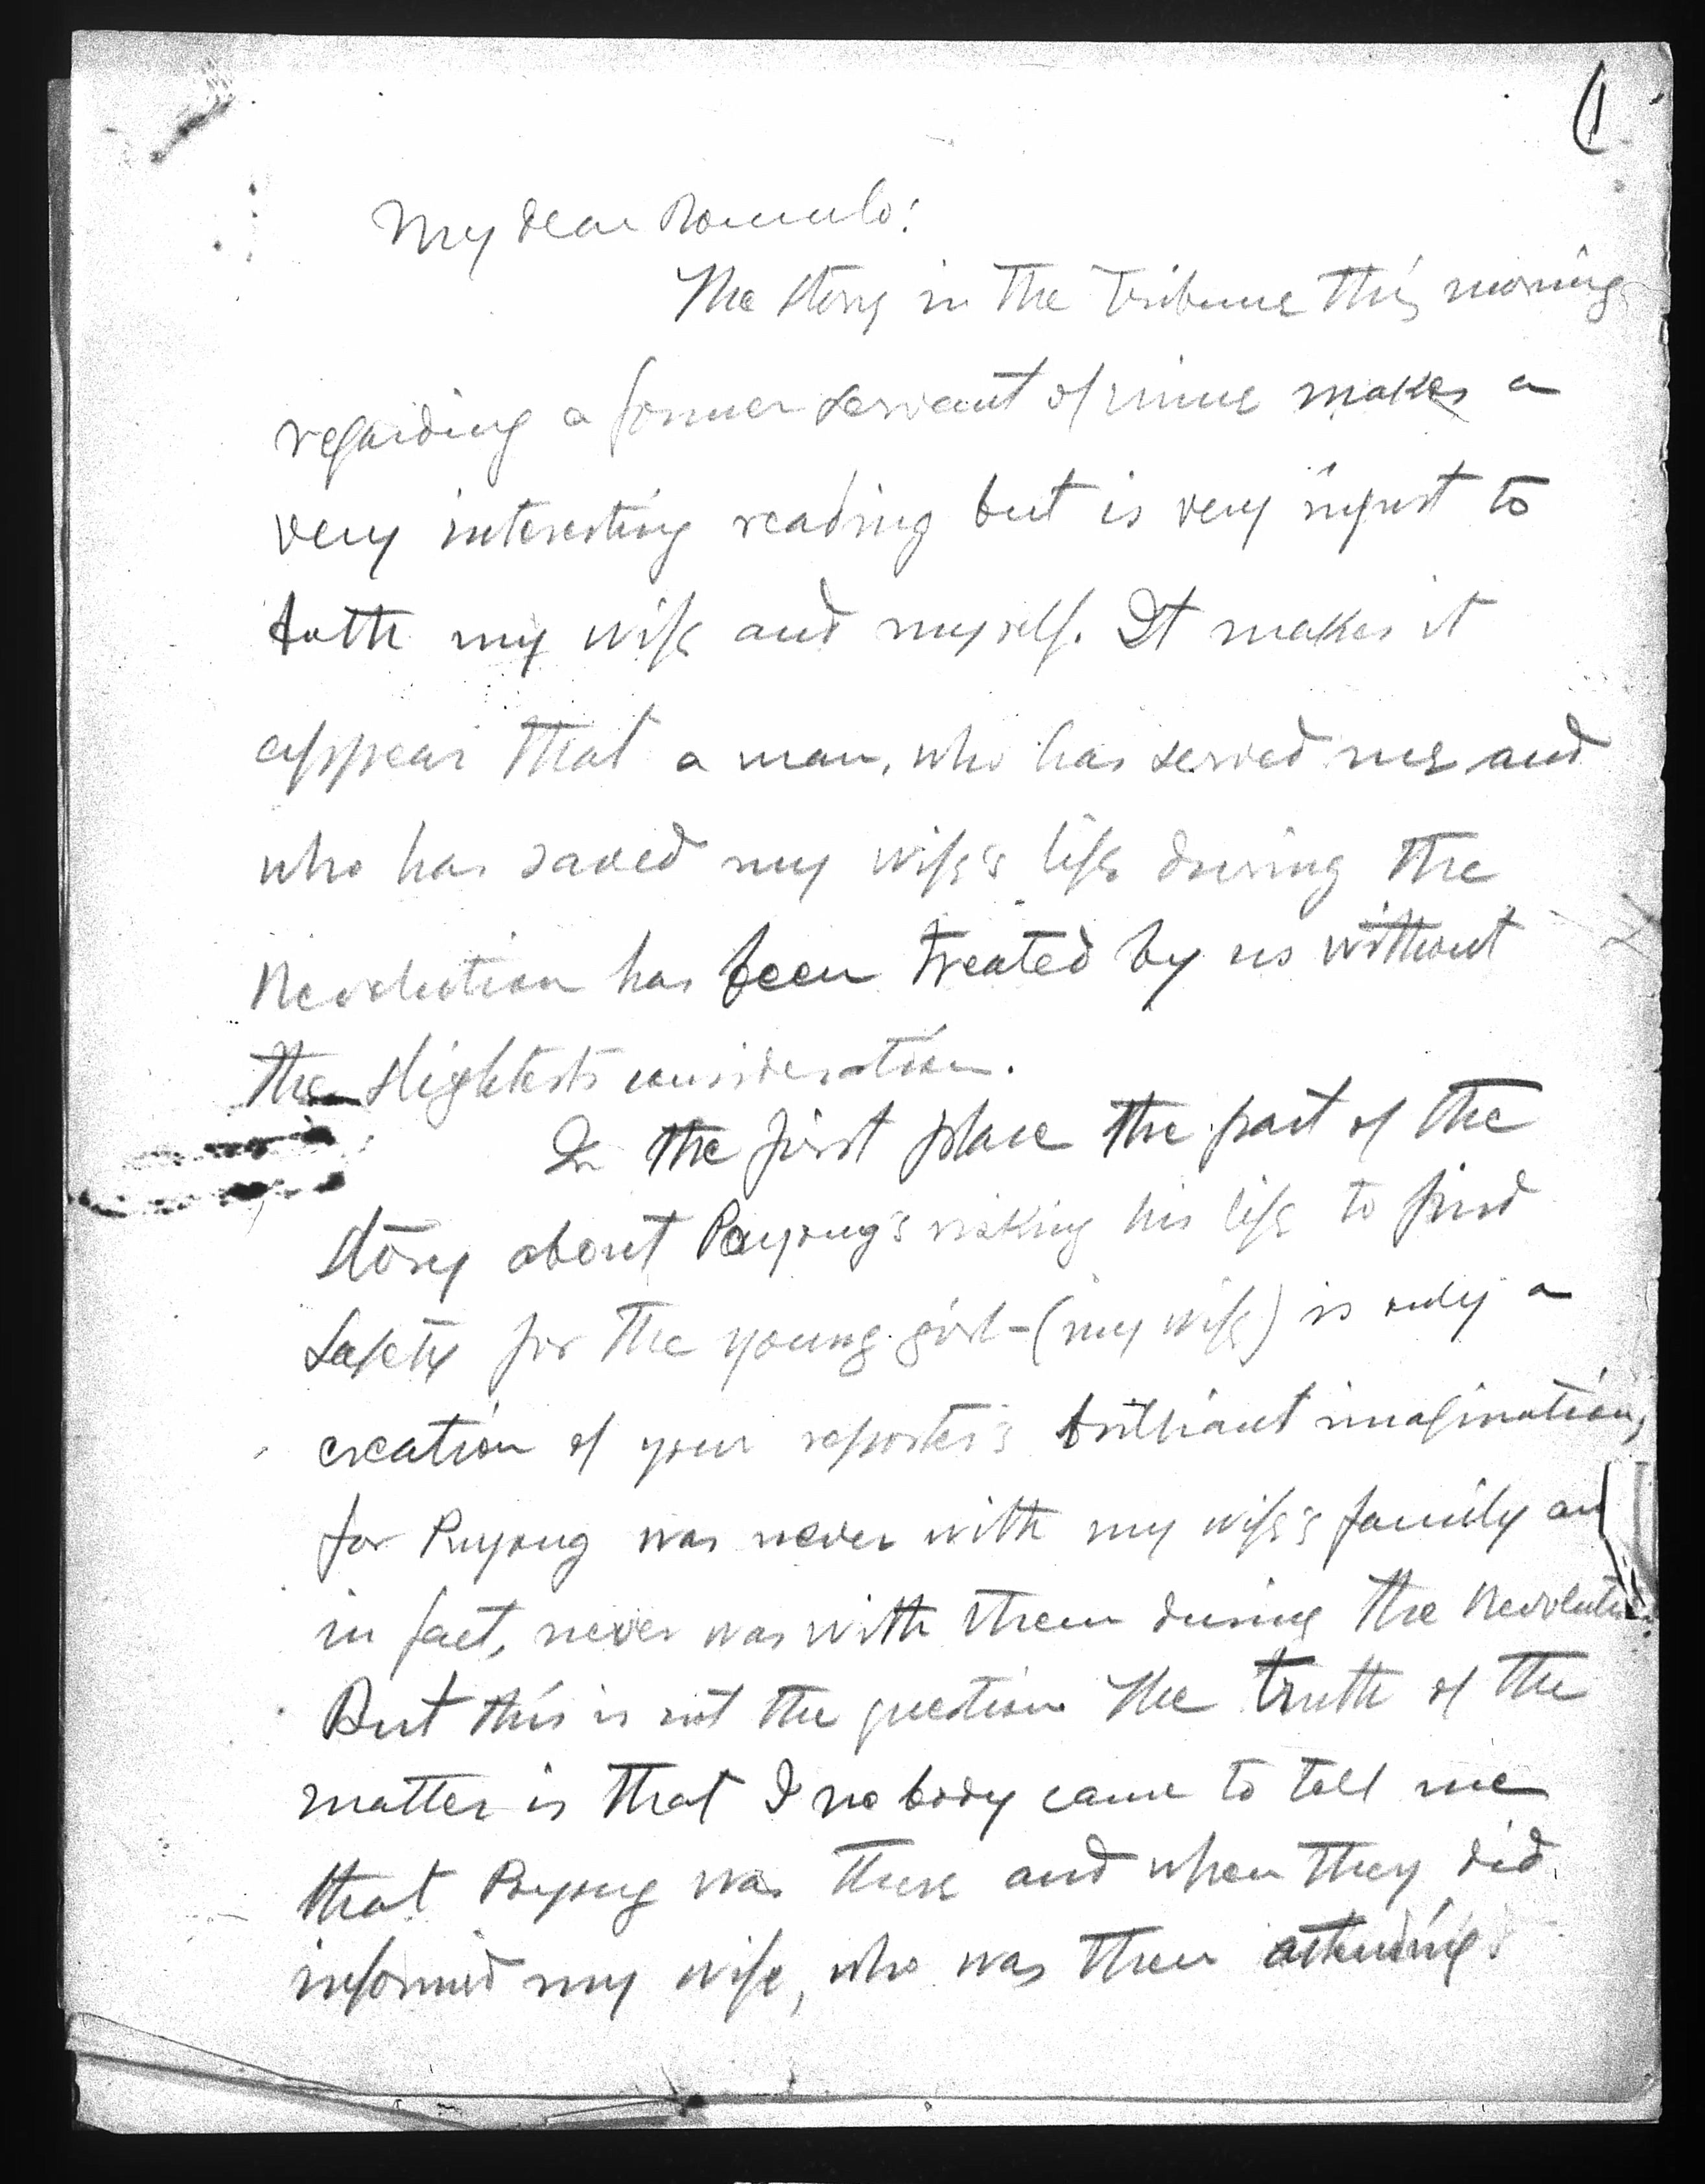 (1
My dear Romulo:
The story in the Tribune this morning
regarding a former servant of mine makes a
very interesting reading but is very injust to
both my wife and myself. It makes it
appear that a man, who has served me and
who has saved my wife's life during the
Revolution has been treated by us without
the slightests consideration.
In the first place the part of the
story about Puyong's risking his life to find
safety for the young girl - (my wife) is only a
creation of your reporter's brilliant imagination,
for Puyong was never with my wife's family an
in fact, never was with them during the Revolution
But this is not the question The truth of the
matter is that I no body came to tell me
that Puyong was there and when they did
informed my wife, who was then attending